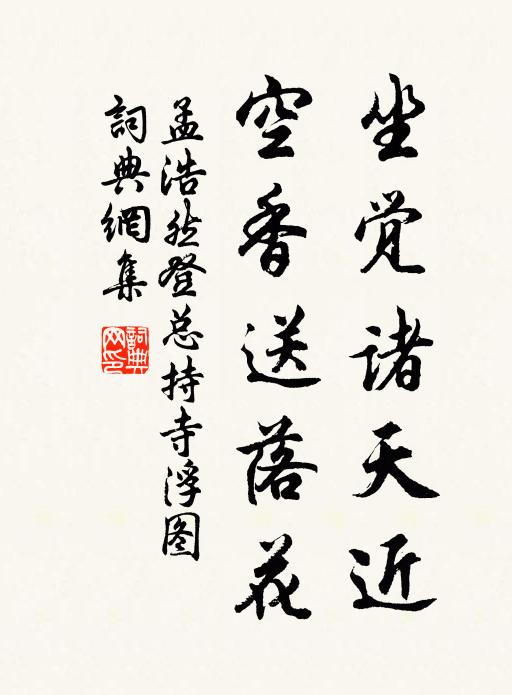 坐觉诸天近
空香送落花
孟浩然登总持寺浮图
詞典網集
詞典网印